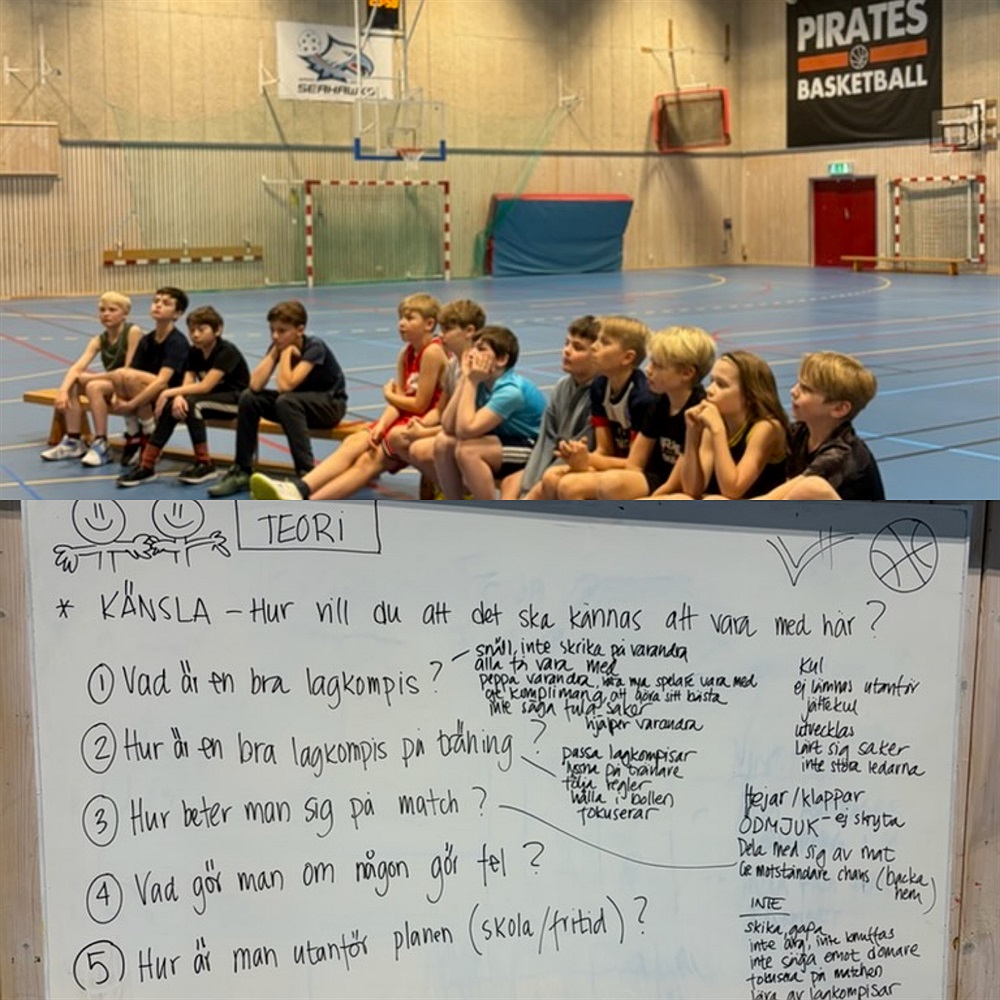 SEAHAWKS
PIRATES
BASKETBALL
TEORI
* KÄNSLA – Hur vill du att det ska kännas att vara med här?
① Vad är en bra lagkompis?
snäll, inte skrika på varandra
alla får vara med
peppa varandra, nya spelare vara med
ge komplimang, att göra sitt bästa
inte säga fula saker
hjälper varandra
Kul
ej lämnas utanför
jättekul
utvecklas
Lärt sig saker
inte störa ledarna
② Hur är en bra lagkompis på träning?
passa lagkompisar
lyssna på tränare
följa regler
hålla i bollen
fokuserar
③ Hur beter man sig på match?
Hejar/klappar
ÖDMJUK – ej skryta
Dela med sig av mat
Ge motståndare chans (backa
hem)
INTE
skika, gapa
inte arg, inte knuffas
inte säga emot domare
fokusera på matchen
lära av lagkompisar
④ Vad gör man om någon gör fel?
⑤ Hur är man utanför planen (skola/fritid)?